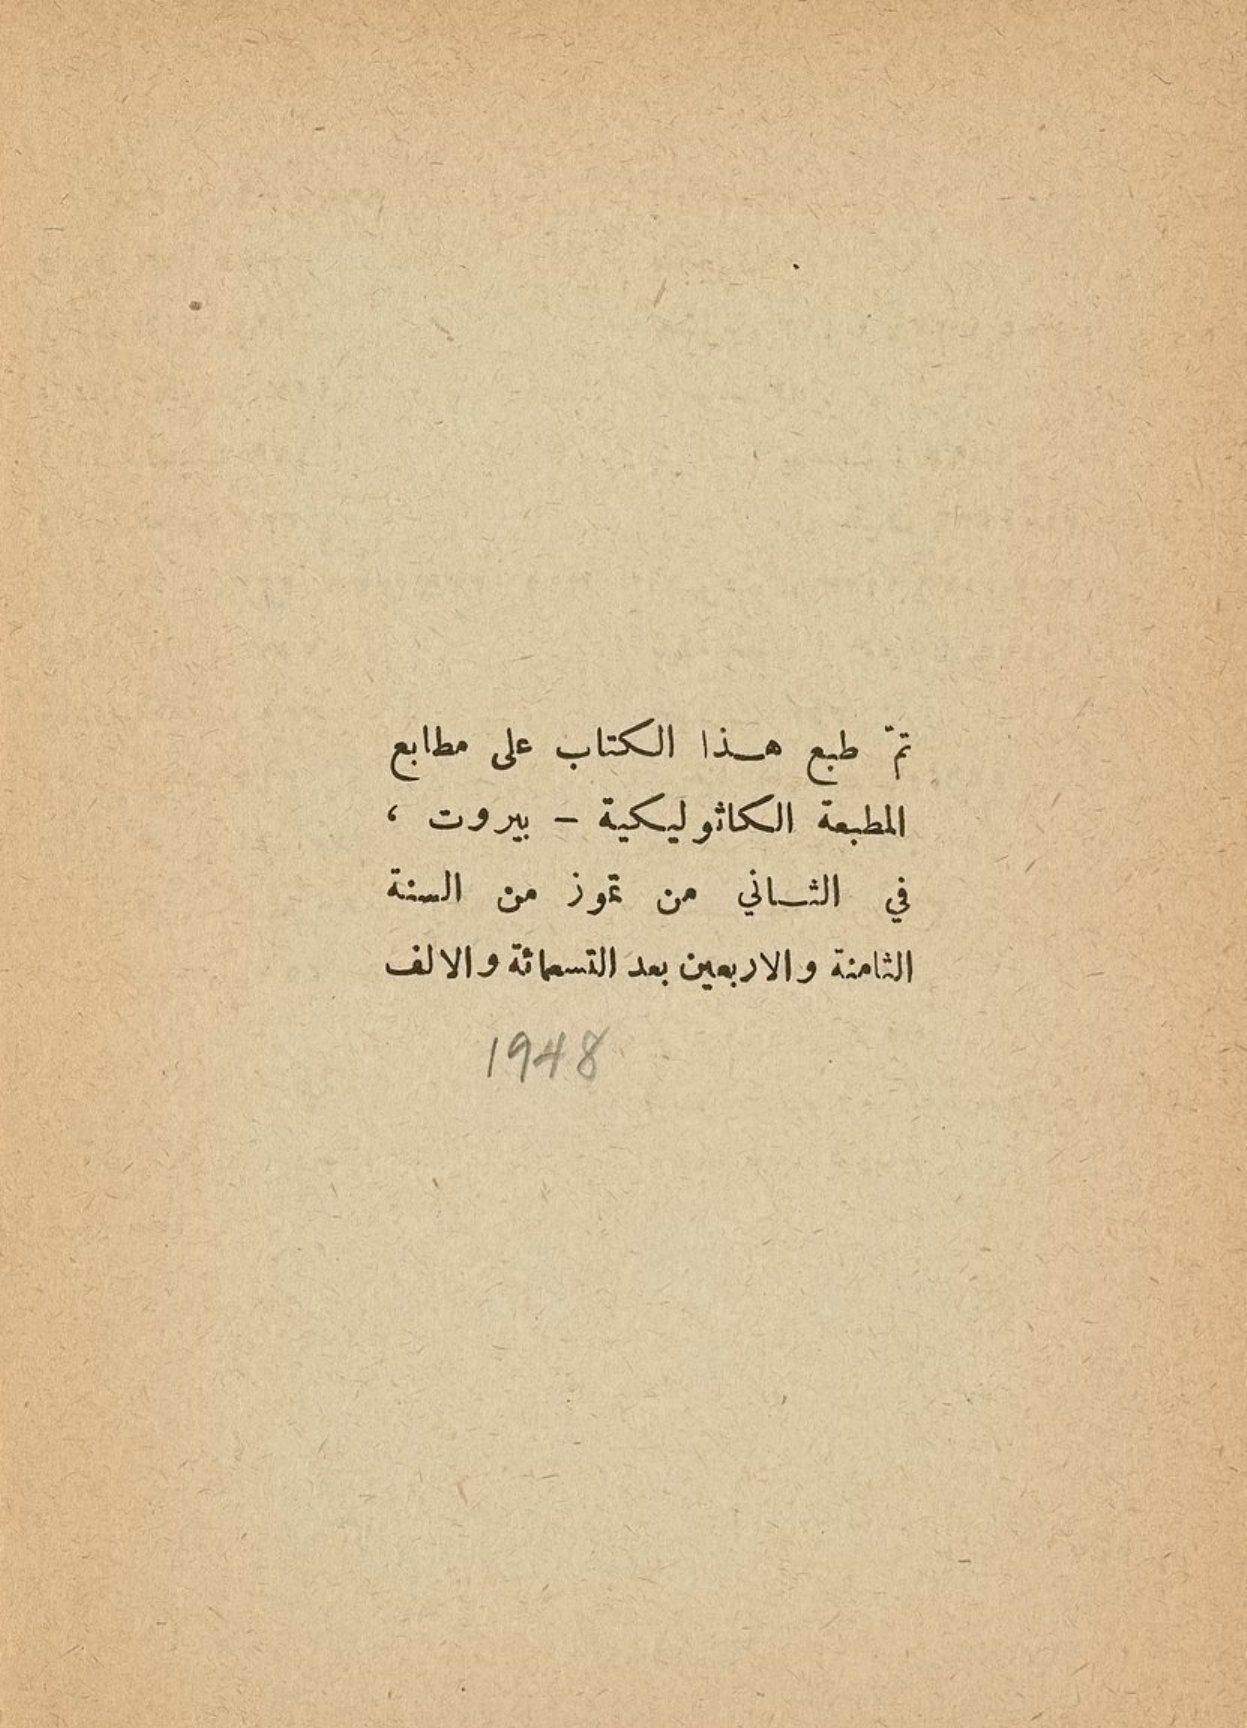 تمّ طبع هـذا الكتاب على مطابع
المطبعة الكاثوليكية – بيروت ،
في الثـاني من تموز من السنة
الثامنة والاربعين بعد التسعمائة والالف
1948